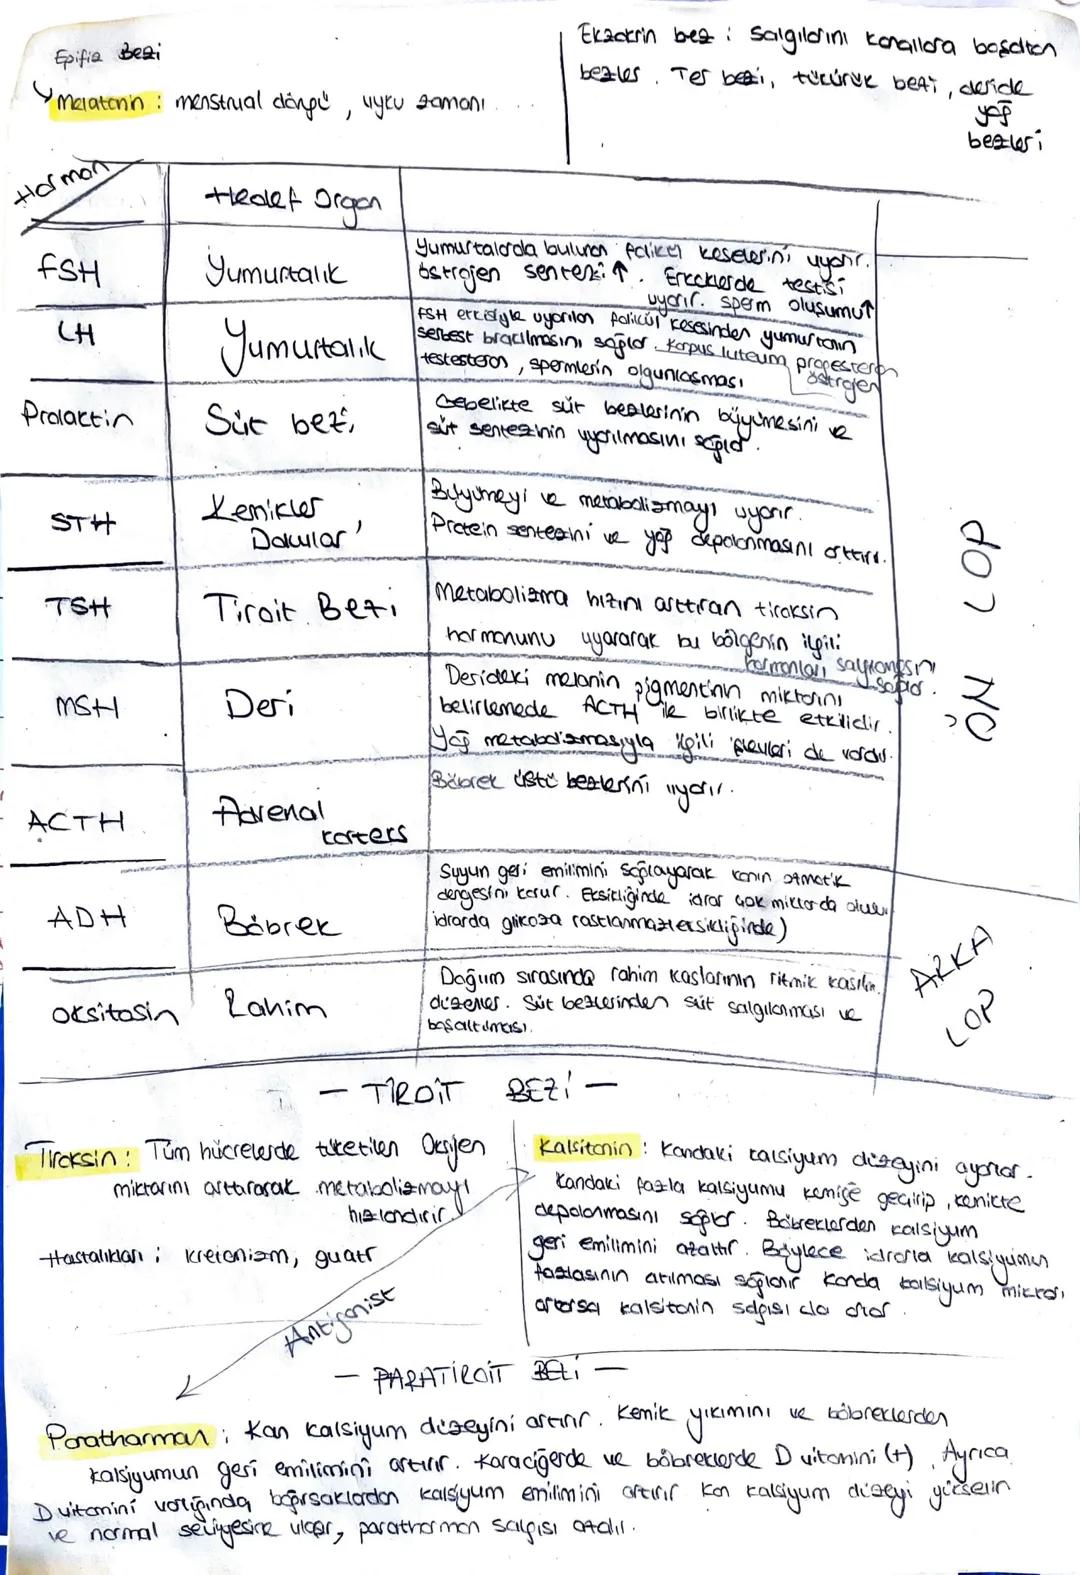 Epifiz Bezi
Melatonin : menstrual döngü , uyku zamanı
Ekzokrin bez : Salgılarını kanallara boşaltan
bezler . Ter bezi, tükürük bezi , deride
yağ
bezleri
Hormon
Hedef Organ
FSH
Yumurtalık
Yumurtalarda bulunan folikül keselerini uyarır.
östrojen sentezi ↑ . Erkeklerde testisi
uyarır. sperm oluşumu↑
LH
Yumurtalık
FSH etkisiyle uyarılan folikül kesesinden yumurtanın
serbest bracılmasını sağlar . Korpus luteum progesteron
östrojen
testesteron , spermlerin olgunlaşması
Prolaktin
Süt bezi
Gebelikte süt bezlerinin büyümesini ve
süt sentezinin uyarılmasını sağlar .
STH
Kemikler ,
Dokular
Büyümeyi ve metabolizmayı uyarır.
Protein sentezini ve yağ depolanmasını arttırır.
TSH
Tiroit Bezi
Metabolizma hızını arttıran tiroksin
hormonunu uyararak bu bölgenin ilgili
hormonları salgılamasını
sağlar .
MSH
Deri
Derideki melanin pigmentinin miktarını
belirlemede ACTH ile birlikte etkilidir.
Yağ metabolizmasıyla ilgili işlevleri de vardır.
ACTH
Adrenal
korteks
Böbrek üstü bezlerini uyarır.
ÖN LOP
ADH
Böbrek
Suyun geri emilimini sağlayarak kanın ozmotik
dengesini korur . Eksikliğinde idrar çok miktarda oluşur
idrarda glikoza rastlanmaz(eksikliğinde)
oksitosin
Rahim
Doğum sırasında rahim kaslarının ritmik kasılm.
düzenler . Süt bezlerinden süt salgılanması ve
boşaltılması.
ARKA
LOP
— TİROİT BEZİ —
Tiroksin : Tüm hücrelerde tüketilen Oksijen
miktarını arttırarak metabolizmayı
hızlandırır.
Hastalıkları ; kretenizm, guatr
Kalsitonin : Kandaki kalsiyum düzeyini ayarlar.
Kandaki fazla kalsiyumu kemiğe geçirip , kemikte
depolanmasını sağlar . Böbreklerden kalsiyum
geri emilimini azaltır. Böylece idrarla kalsiyumun
fazlasının atılması sağlanır Kanda kalsiyum miktarı
artarsa kalsitonin salgısı da artar .
Antigonist
— PARATİROİT BEZİ —
Parathormon ; Kan kalsiyum düzeyini artırır . Kemik yıkımını ve böbreklerden
kalsiyumun geri emilimini artırır. Karaciğerde ve böbreklerde D vitamini (+) . Ayrıca
D vitamini varlığında bağırsaklardan kalsiyum emilimini artırır Kan kalsiyum düzeyi yükselin
ve normal seviyesine ulaşır, parathormon salgısı azalır.